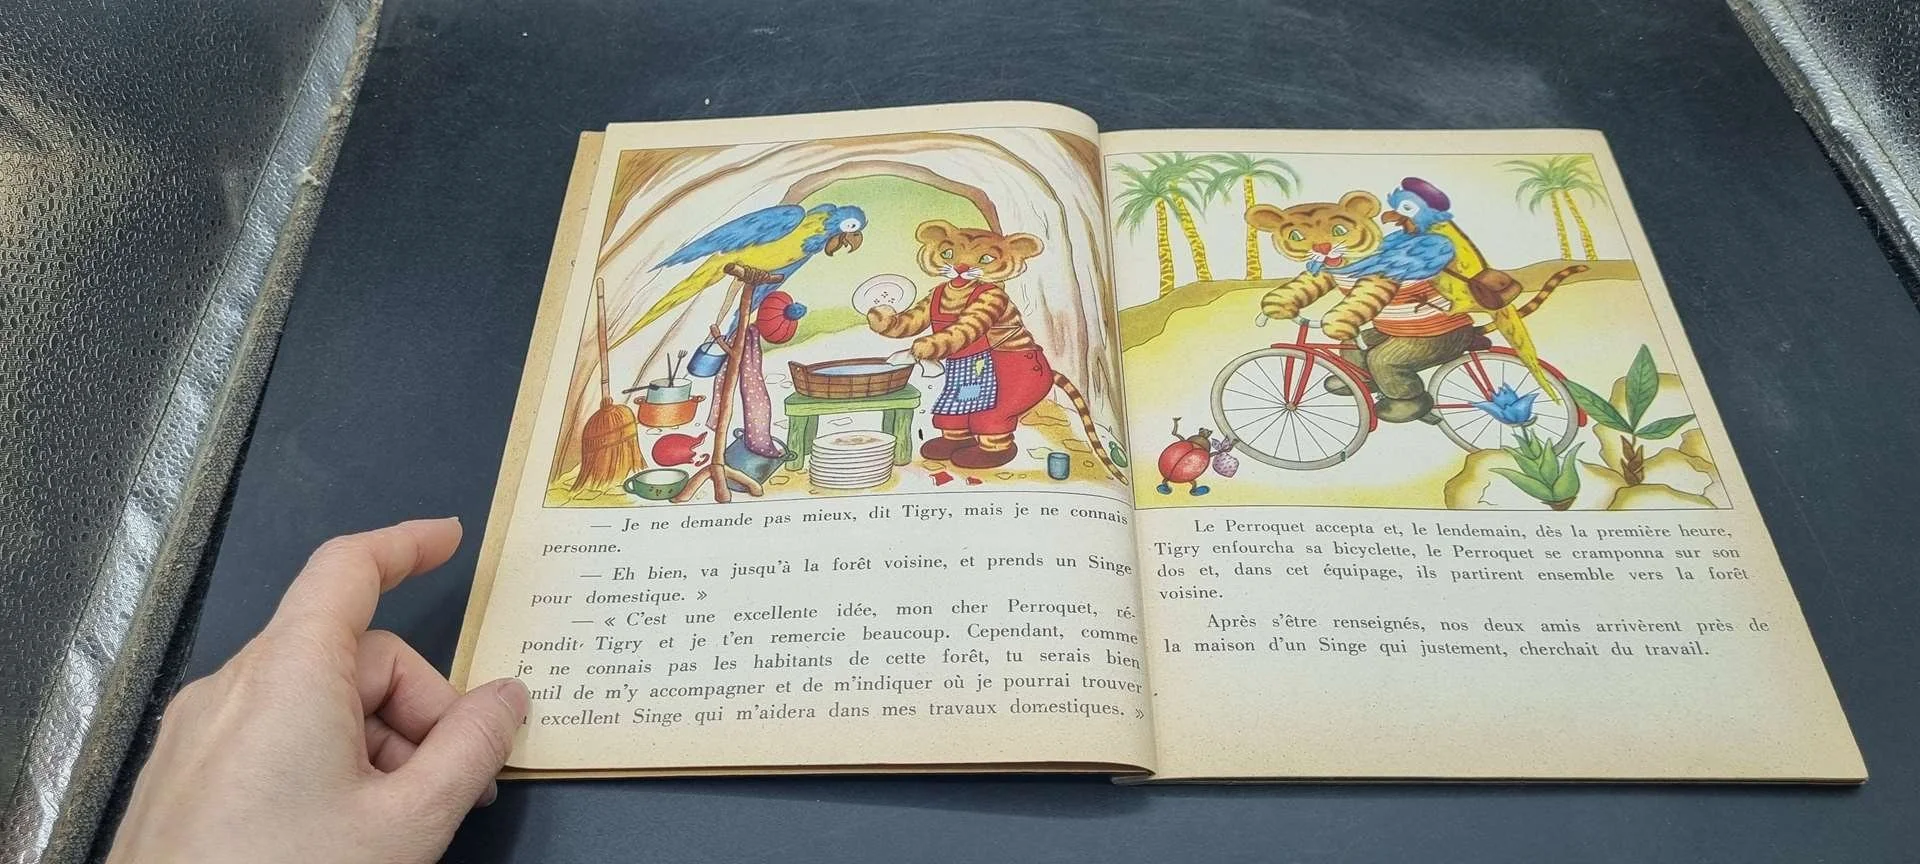 — Je ne demande pas mieux, dit Tigry, mais je ne connais
personne.
— Eh bien, va jusqu'à la forêt voisine, et prends un Singe
pour domestique. »
— « C'est une excellente idée, mon cher Perroquet, ré-
pondit Tigry et je t'en remercie beaucoup. Cependant, comme
je ne connais pas les habitants de cette forêt, tu serais bien
ntil de m'y accompagner et de m'indiquer où je pourrai trouver
excellent Singe qui m'aidera dans mes travaux domestiques. »
Le Perroquet accepta et, le lendemain, dès la première heure,
Tigry enfourcha sa bicyclette, le Perroquet se cramponna sur son
dos et, dans cet équipage, ils partirent ensemble vers la forêt
voisine.
Après s'être renseignés, nos deux amis arrivèrent près de
la maison d'un Singe qui justement, cherchait du travail.